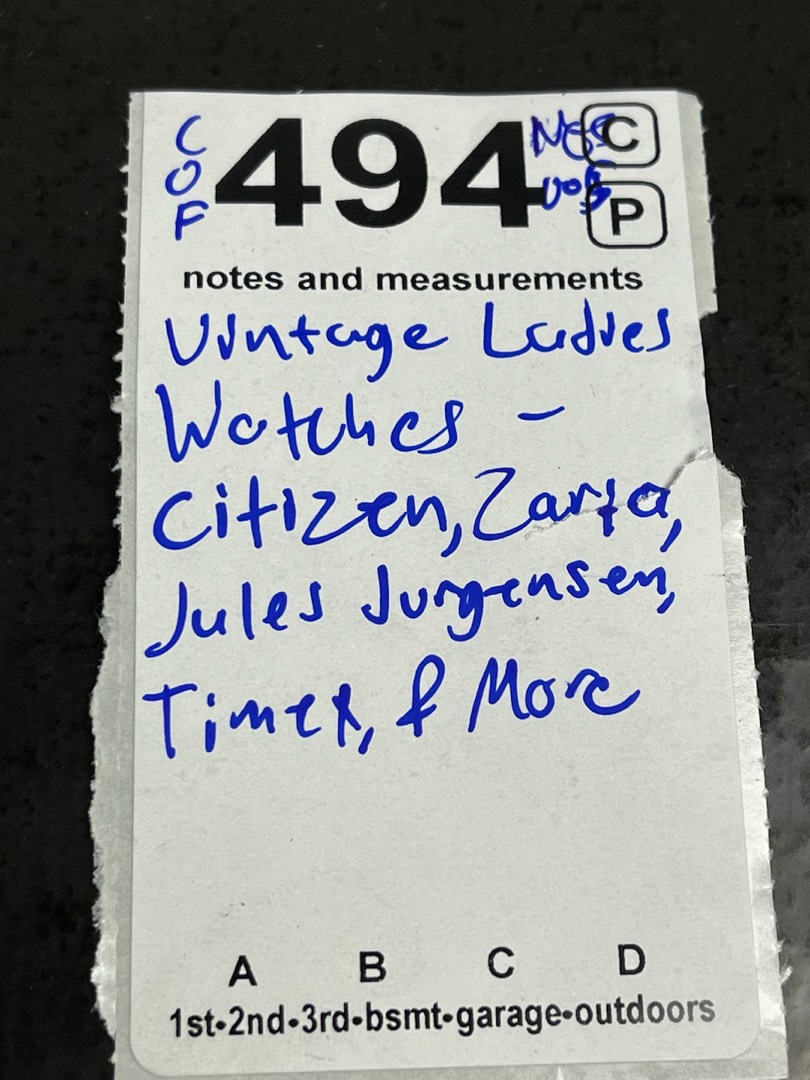 COF 494 C
P
notes and measurements
Vintage Ladies
Watches -
Citizen, Zaria,
Jules Jurgensen,
Timex, & More
A B C D
1st•2nd•3rd•bsmt•garage•outdoors